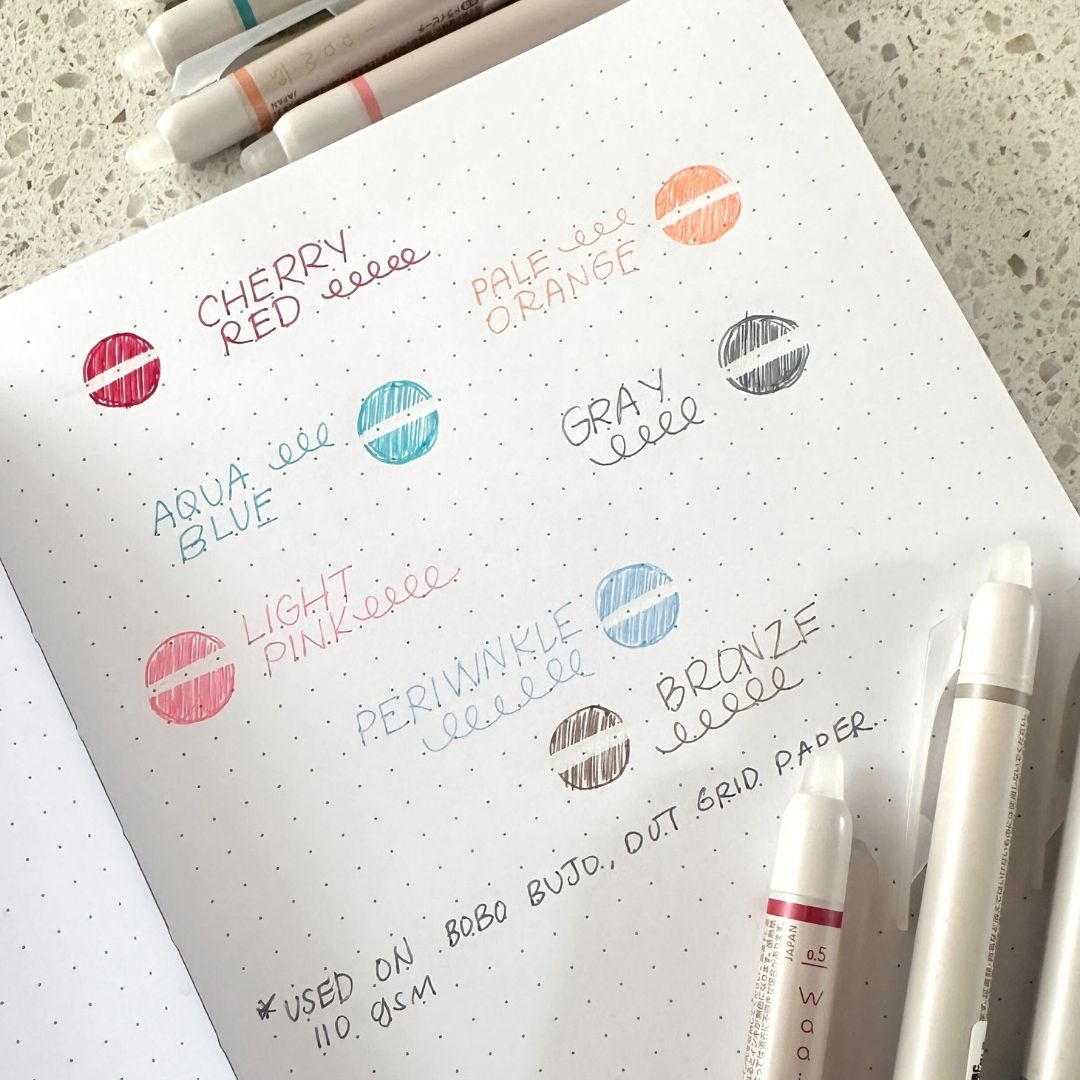 CHERRY
RED
PALE
ORANGE
AQUA
BLUE
GRAY
LIGHT
PINK
PERIWNKLE
BRONZE
*USED ON BOBO BUJO., DOT GRID PAPER.
110 gsm
JAPAN
JAPAN
0.5
waa